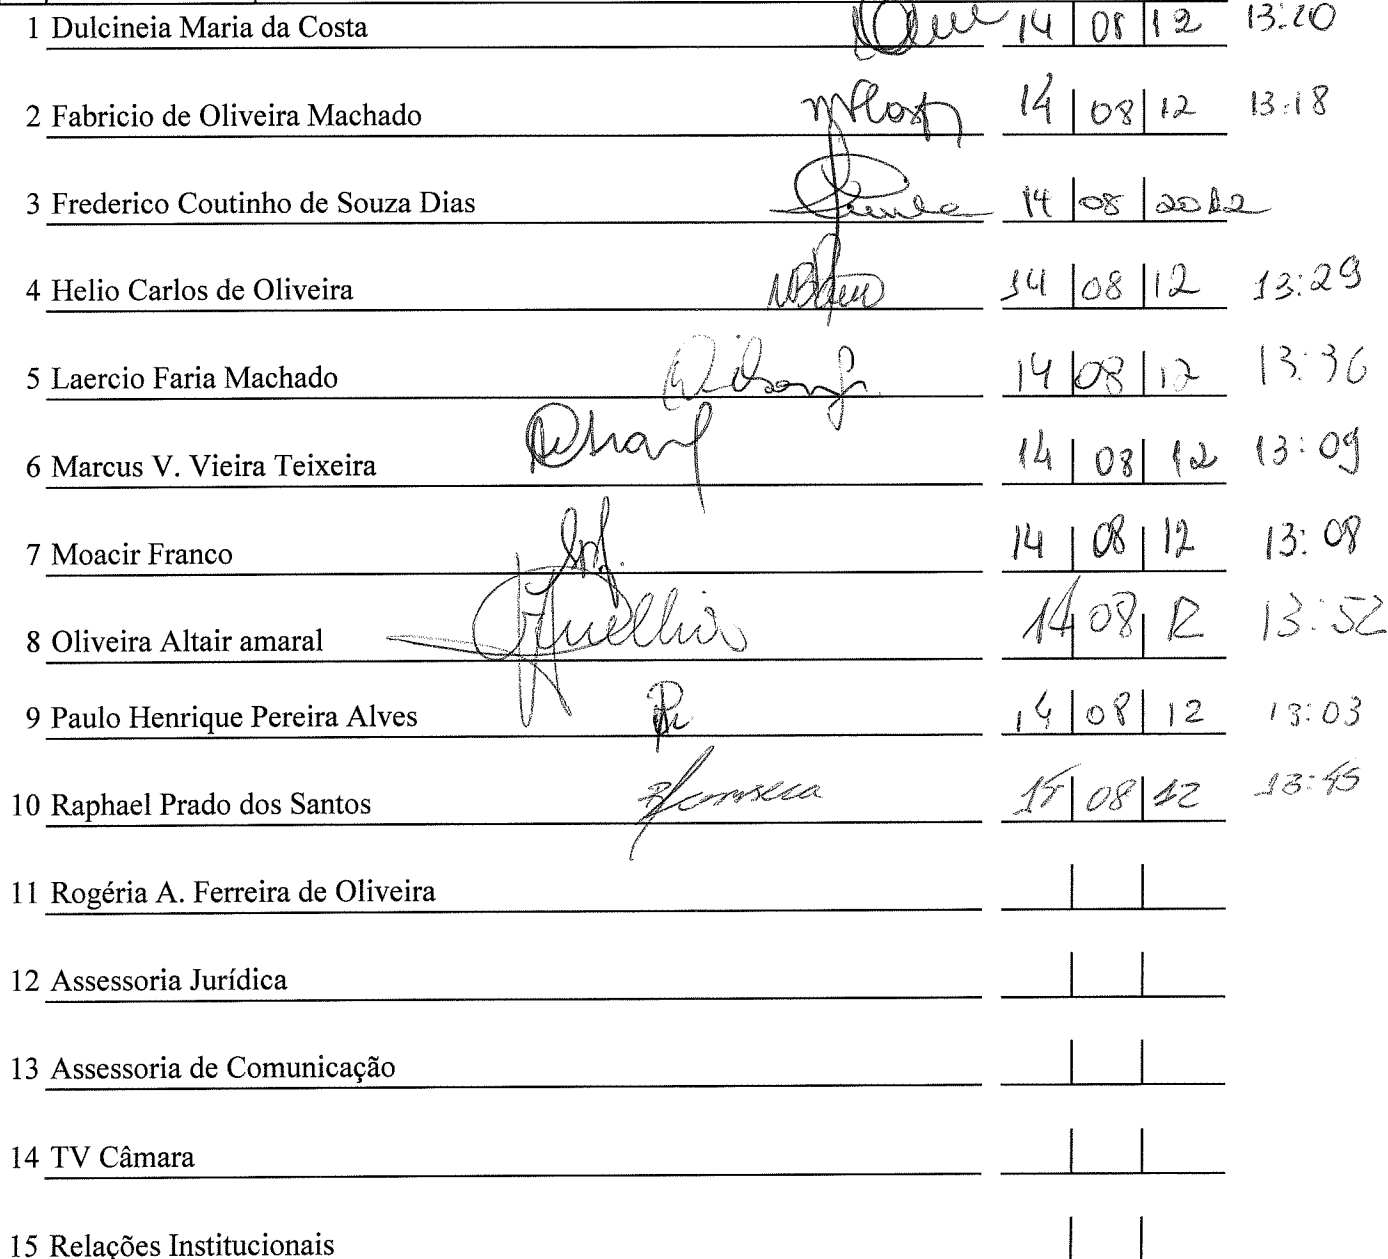 1 Dulcineia Maria da Costa 14 | 08 | 12 13:20
2 Fabricio de Oliveira Machado 14 | 08 | 12 13:18
3 Frederico Coutinho de Souza Dias 14 | 08 | 2012
4 Helio Carlos de Oliveira 14 | 08 | 12 13:29
5 Laercio Faria Machado 14 | 08 | 12 13:36
6 Marcus V. Vieira Teixeira 14 | 08 | 12 13:09
7 Moacir Franco 14 | 08 | 12 13:08
8 Oliveira Altair amaral 14 | 08 | 12 13:52
9 Paulo Henrique Pereira Alves 14 | 08 | 12 13:03
10 Raphael Prado dos Santos Fonseca | 08 | 12
11 Rogéria A. Ferreira de Oliveira
12 Assessoria Jurídica
13 Assessoria de Comunicação
14 TV Câmara
15 Relações Institucionais